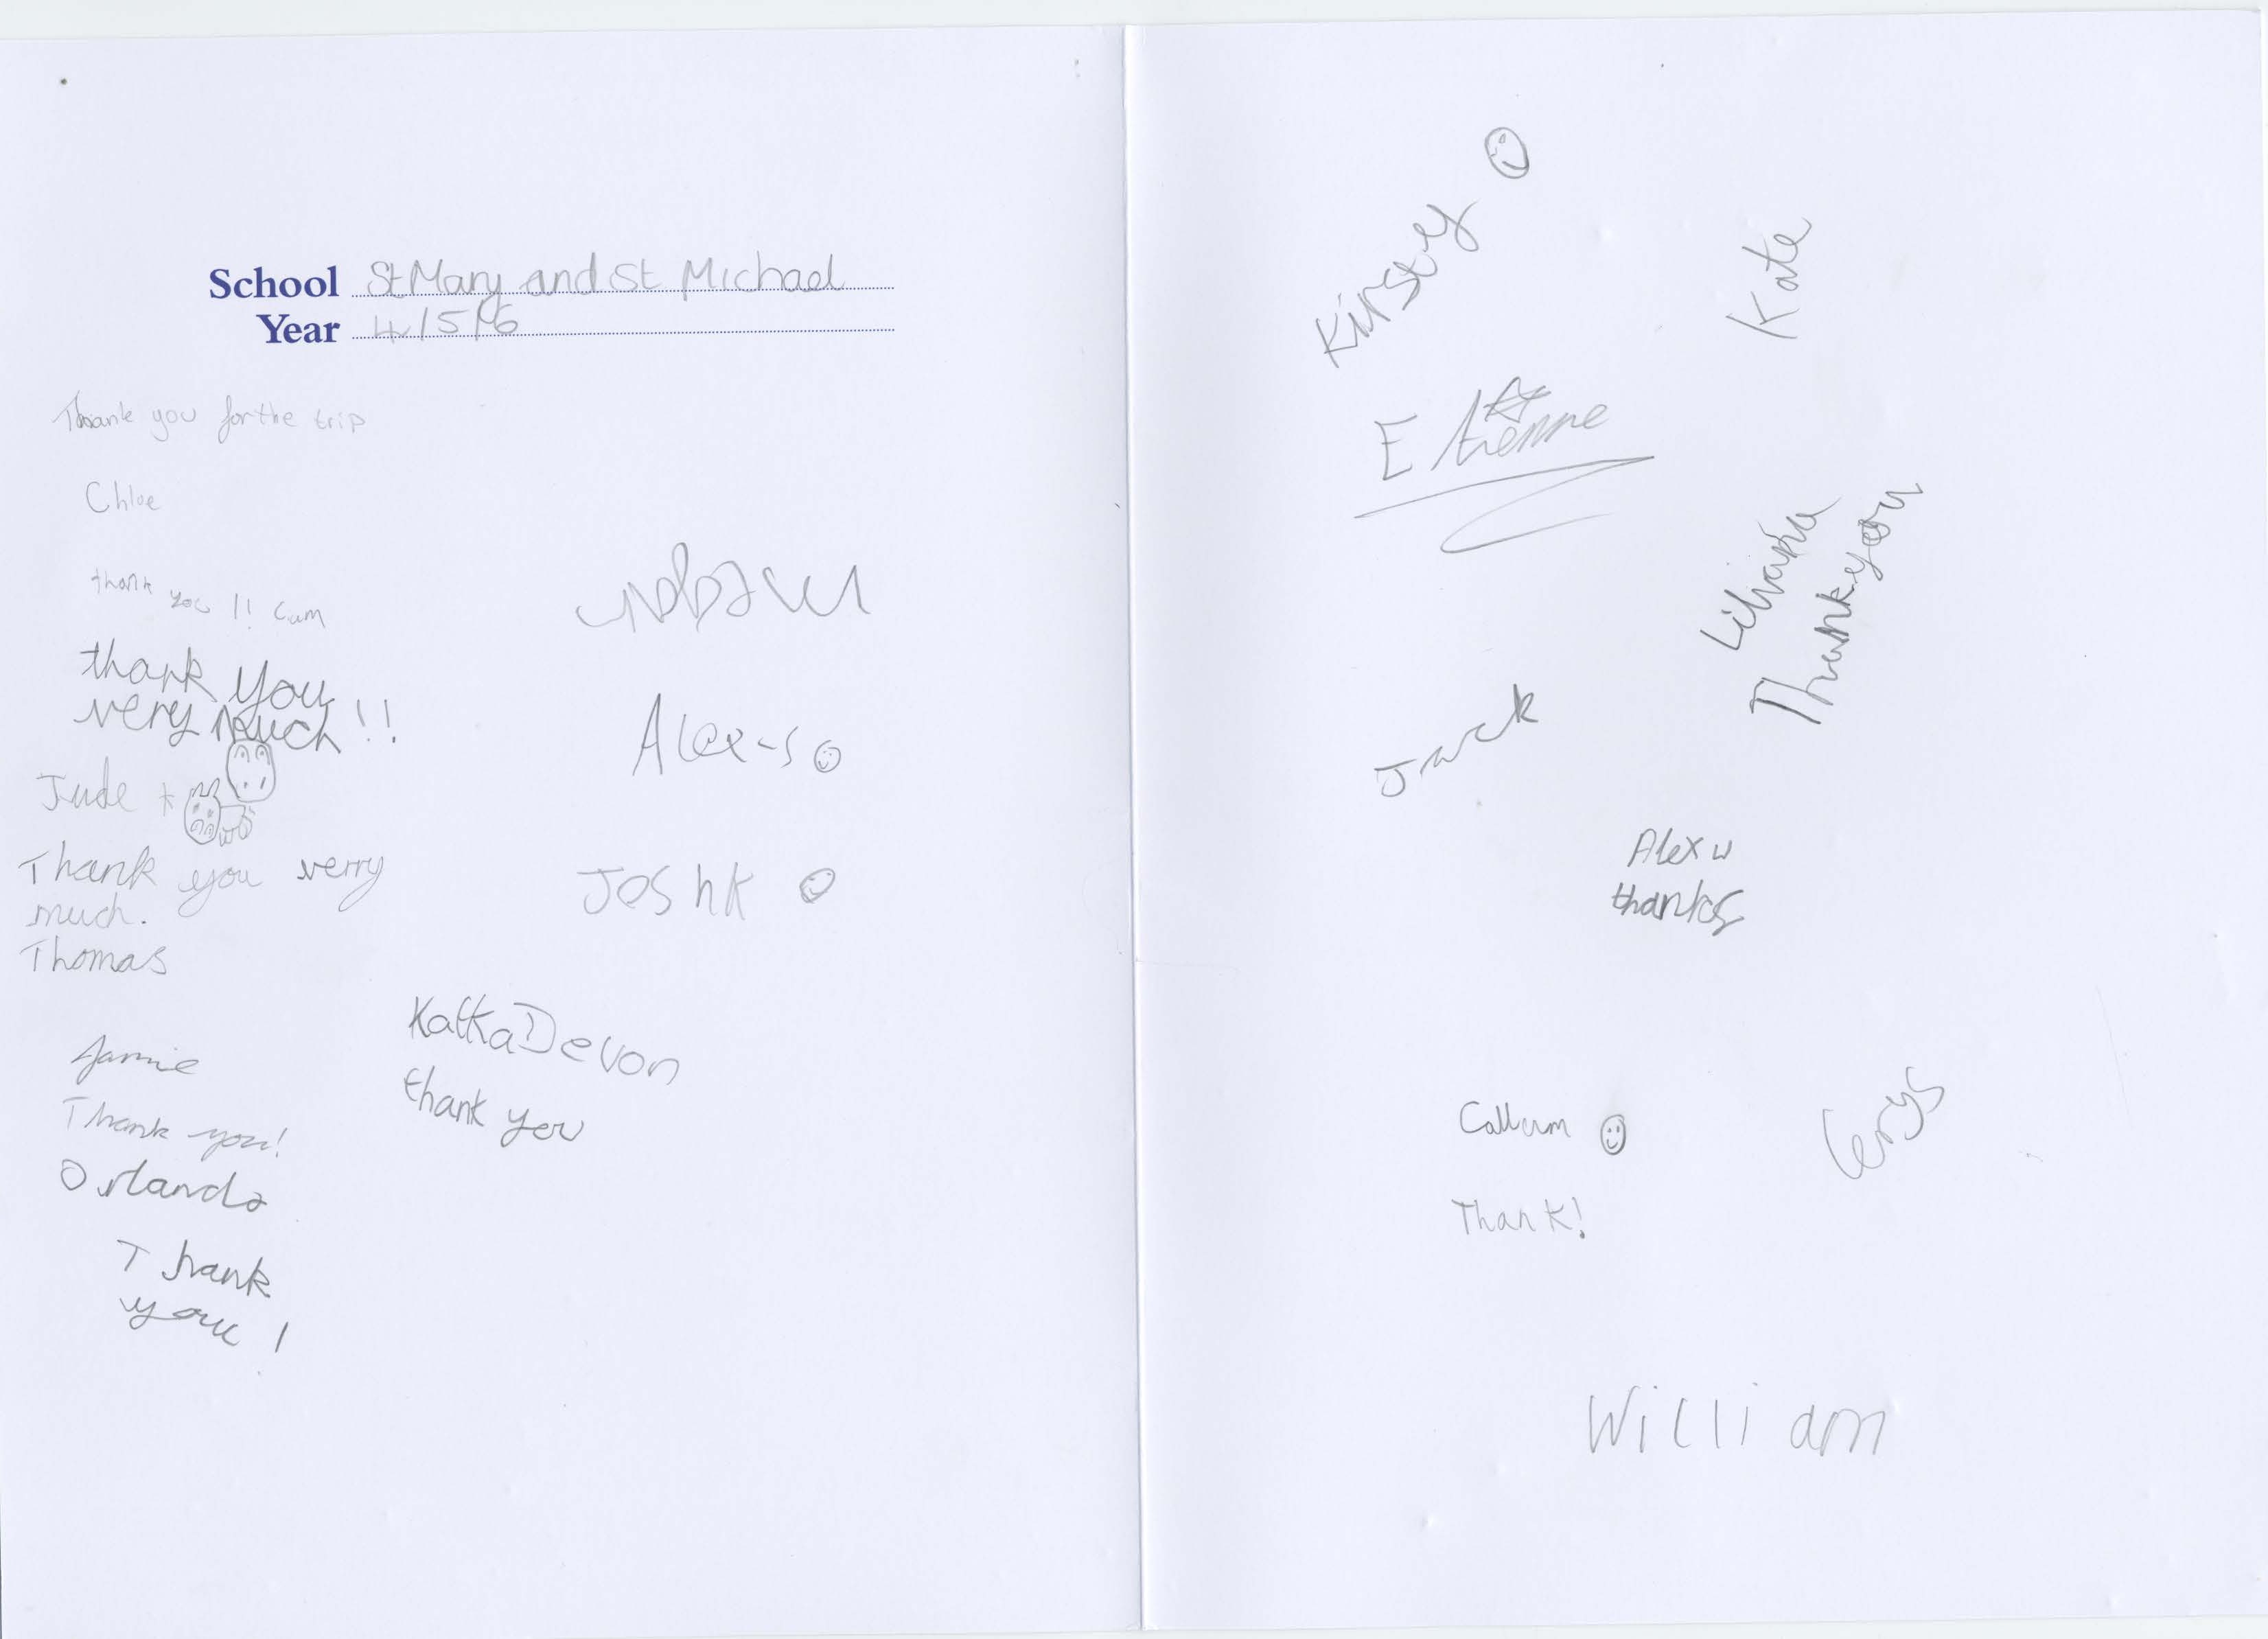 School St Mary and St Michael
Year 4/5/6
Thank you for the trip
Chloe
thank you !! Cam
thank you
very much !!
Jude
Thank you verry
much.
Thomas
Jamie
Thank you!
Orlando
Thank
you !
Alex-s
Josh K
Katka Devon
thank you
Kirstey
Kate
Etienne
Thank you
Jack
Alex w
thanks
Callum
Thank!
Cerys
William